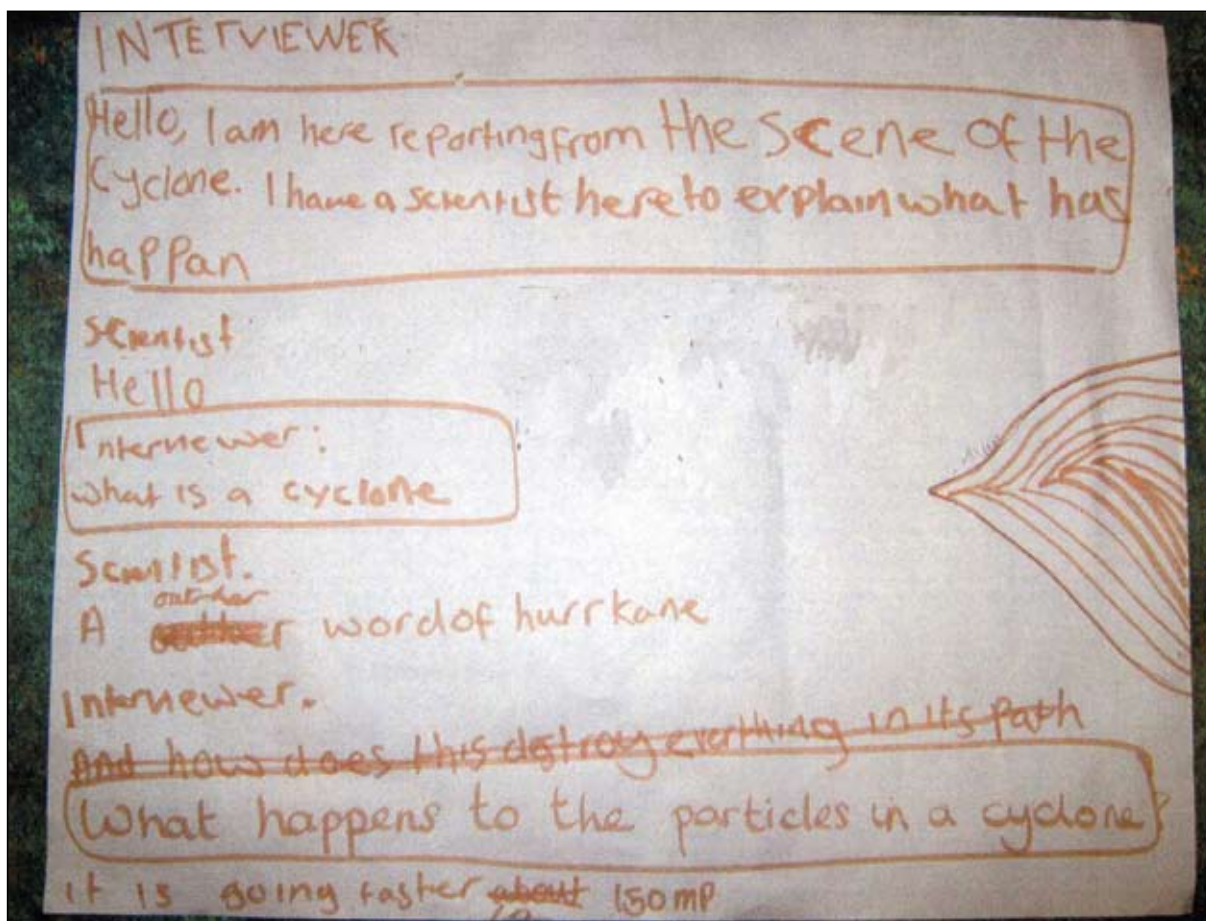 INTERVIEWER
Hello, I am here reporting from the scene of the
Cyclone. I have a scientist here to explain what has
happan
scientist
Hello
Interviewer:
what is a cyclone
Scientist.
A outher word of hurrkane
Interviewer.
And how does this distroy everthing in its path
What happens to the particles in a cyclone?
it is going faster about 150mp